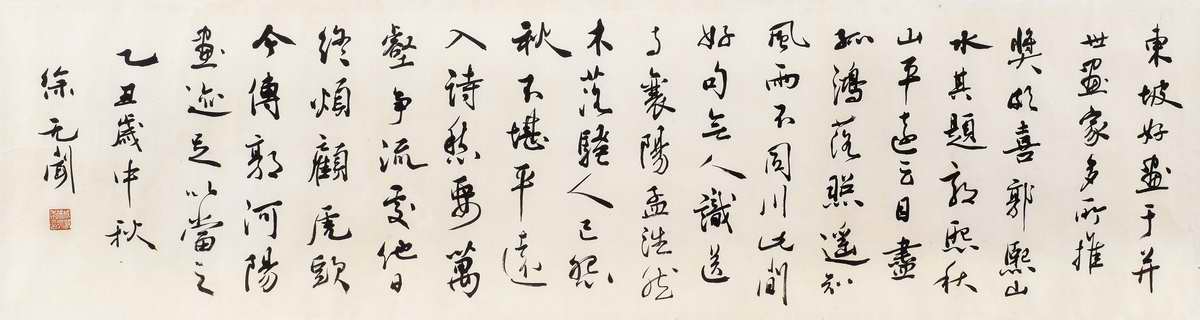 東坡好畫于并
世畫家多所推
獎頗喜郭熙山
水其題郭熙秋
山平遠云目盡
孤鴻落照遥知
風雨不同川此間
好句無人識送
与襄陽孟浩然
木落騷人已怨
秋不堪平遠
入詩愁要萬
壑争流處他日
終煩顧虎頭
今傳郭河陽
畫迹足以當之
乙丑歲中秋
徐无聞